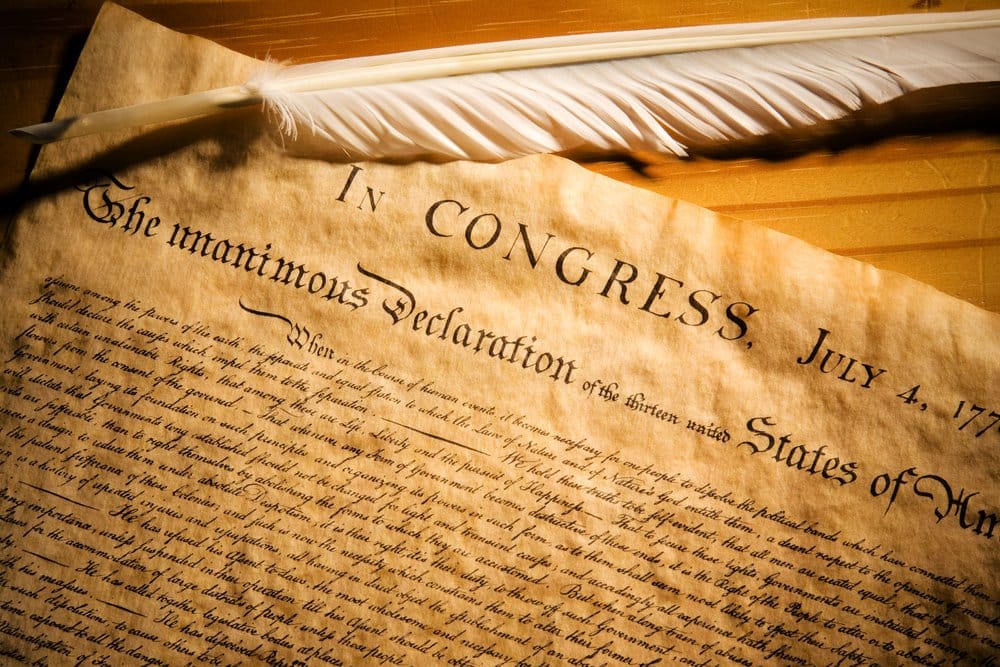 In CONGRESS, July 4, 177
The unanimous Declaration of the thirteen united States of Am
When in the Course of human events, it becomes necessary for one people to dissolve the political bands which have connected them
assume among the powers of the earth, the separate and equal station to which the Laws of Nature and of Nature's God entitle them, a decent respect to the opinions of
should declare the causes which impel them to the separation. We hold these truths to be self-evident, that all men are created equal, that they are
with certain unalienable Rights, that among these are Life, Liberty and the pursuit of Happiness. — That to secure these rights, Governments are instituted among
powers from the consent of the governed, — That whenever any Form of Government becomes destructive of these ends, it is the Right of the People to alter or to abolish
Government, laying its foundation on such principles and organizing its powers in such form, as to them shall seem most likely to effect
will dictate that Governments long established should not be changed for light and transient causes; and accordingly all
are sufferable, than to right themselves by abolishing the forms to which they are accustomed. But when a long train of abuses
a design to reduce them under absolute Despotism, it is their right, it is their duty, to throw off such Government,
the patient sufferance of these Colonies; and such is now the necessity which constrains them to alter their former
is a history of repeated injuries and usurpations, all having in direct object the establishment of an
He has refused his Assent to Laws, the most wholesome and necessary
importance, unless suspended in their operation till his Assent should be
for the accommodation of large districts of people, unless those people
He has called together legislative bodies
his measures. He has dissolved